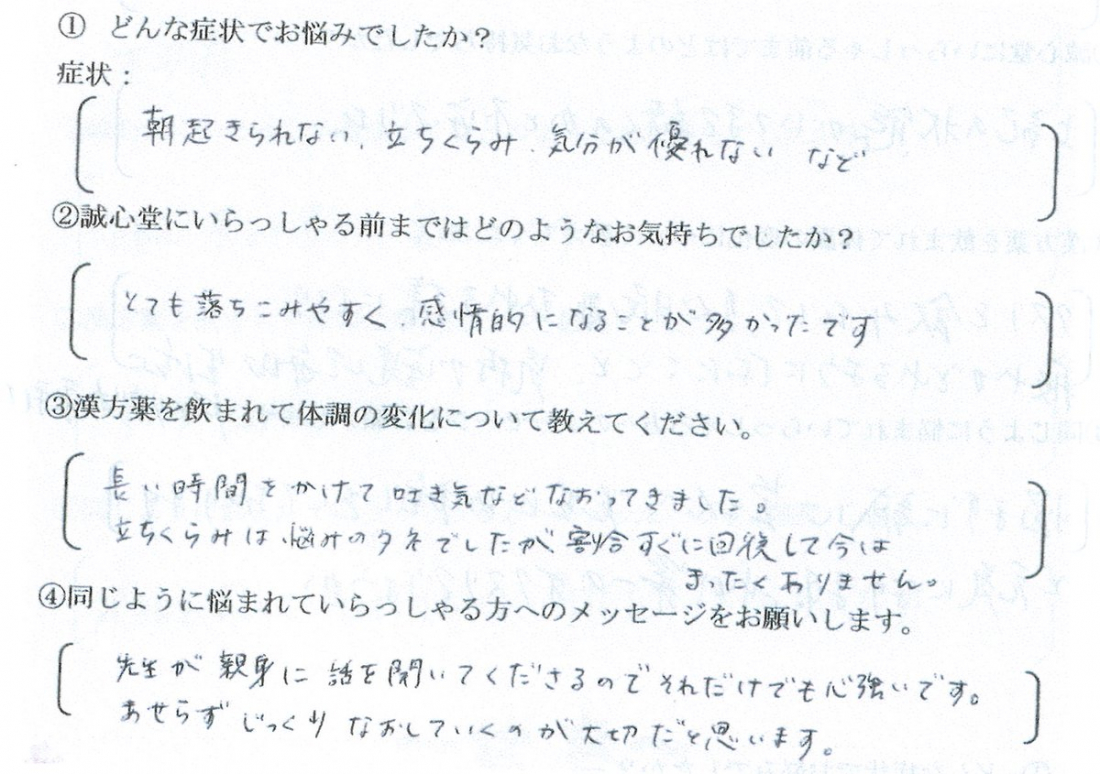 ① どんな症状でお悩みでしたか?
症状:
朝起きられない、立ちくらみ、気分が優れない など
②誠心堂にいらっしゃる前まではどのようなお気持ちでしたか?
とても落ちこみやすく、感情的になることが多かったです
③漢方薬を飲まれて体調の変化について教えてください。
長い時間をかけて吐き気などなおってきました。
立ちくらみは、悩みのタネでしたが、割合すぐに回復して今は
まったくありません。
④同じように悩まれていらっしゃる方へのメッセージをお願いします。
先生が親身に話を聞いてくださるのでそれだけでも心強いです。
あせらずじっくりなおしていくのが大切だと思います。